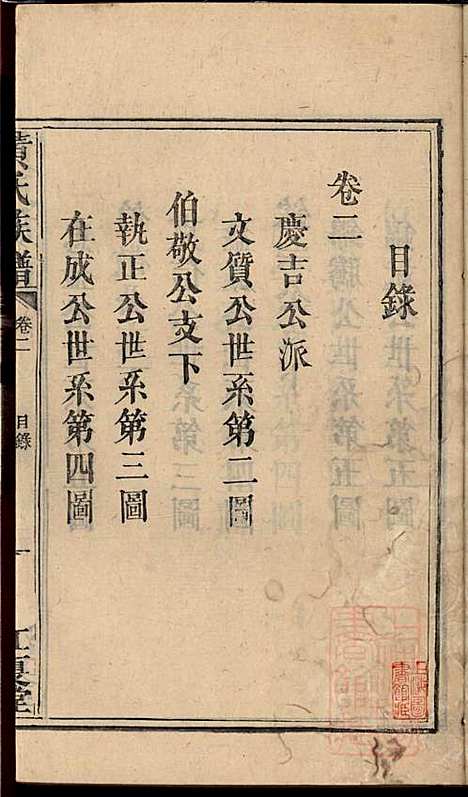 目錄
卷二
慶吉公派
文質公世系第二圖
伯敬公支下
執正公世系第三圖
在成公世系第四圖
黃氏族譜
卷二
目錄
一
江夏堂
上海圖書館藏